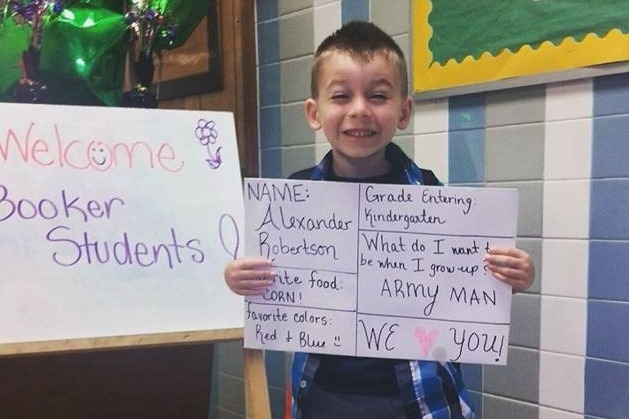 Welcome
Booker
Students
NAME:
Alexander
Robertson
food:
CORN!
favorite colors:
Red + Blue
Grade Entering:
Kindergarten
What do I want
be when I grow up?
ARMY MAN
WE YOU!